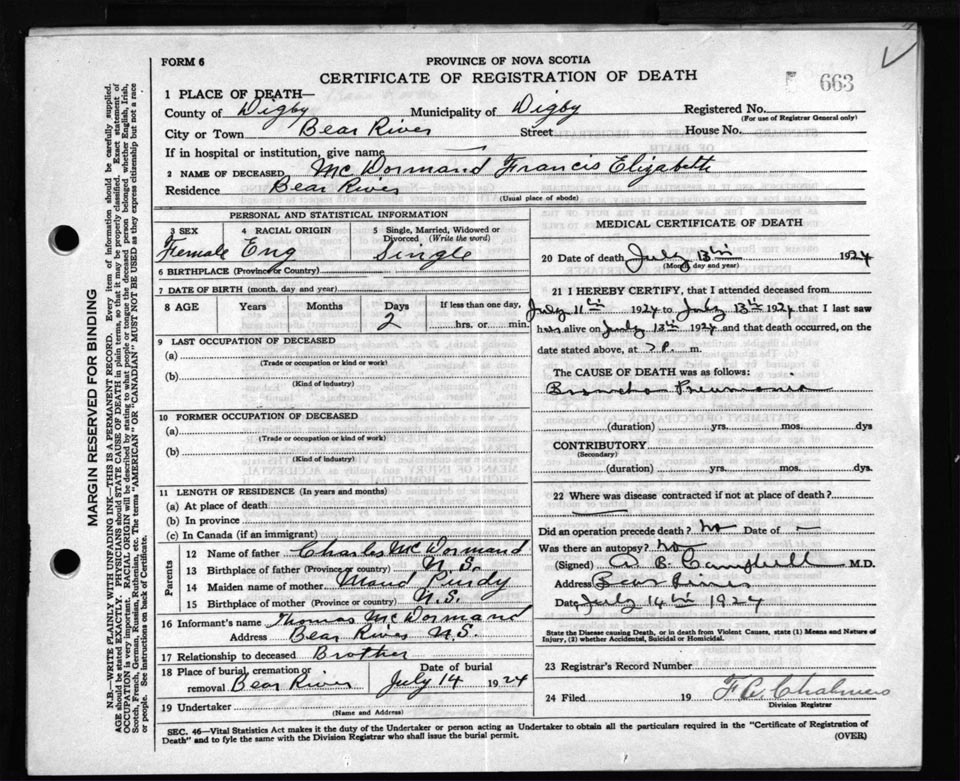 FORM 6
PROVINCE OF NOVA SCOTIA
CERTIFICATE OF REGISTRATION OF DEATH
663
1 PLACE OF DEATH—
County of Digby Municipality of Digby Registered No.
(For use of Registrar General only)
City or Town Bear River Street House No.
If in hospital or institution, give name
2 NAME OF DECEASED Mc Dormand Francis Elizabeth
Residence Bear River
(Usual place of abode)
PERSONAL AND STATISTICAL INFORMATION
3 SEX 4 RACIAL ORIGIN 5 Single, Married, Widowed or
Divorced (Write the word)
Female Eng Single
6 BIRTHPLACE (Province or Country)
7 DATE OF BIRTH (month, day and year)
8 AGE Years Months Days If less than one day,
2 hrs. or min.
9 LAST OCCUPATION OF DECEASED
(a)
(Trade or occupation or kind of work)
(b)
(Kind of industry)
10 FORMER OCCUPATION OF DECEASED
(a)
(Trade or occupation or kind of work)
(b)
(Kind of industry)
11 LENGTH OF RESIDENCE (In years and months)
(a) At place of death
(b) In province
(c) In Canada (if an immigrant)
Parents
12 Name of father Charles Mc Dormand
13 Birthplace of father (Province or country) N.S.
14 Maiden name of mother Maud Purdy
15 Birthplace of mother (Province or country) N.S.
16 Informant's name Thomas McDormand
Address Bear River N.S.
17 Relationship to deceased Brother
18 Place of burial, cremation or Date of burial
removal Bear River July 14 1924
19 Undertaker
(Name and Address)
MEDICAL CERTIFICATE OF DEATH
20 Date of death July 13th 1924
(Month, day and year)
21 I HEREBY CERTIFY, that I attended deceased from
July 11th 1924 to July 13th 1924 that I last saw
alive on July 13th 1924 and that death occurred, on
the date stated above, at m.
The CAUSE OF DEATH was as follows:
Broncho Pneumonia
(duration) yrs. mos. dys
CONTRIBUTORY
(Secondary)
(duration) yrs. mos. dys.
22 Where was disease contracted if not at place of death?
Did an operation precede death? No Date of —
Was there an autopsy? No
(Signed) B. Campbell M.D.
Address Bear River
Date July 14th 1924
State the Disease causing Death, or in death from Violent Causes, state (1) Means and Nature of
Injury, (2) whether Accidental, Suicidal or Homicidal.
23 Registrar's Record Number
24 Filed 19 Chalmers
Division Registrar
SEC. 46—Vital Statistics Act makes it the duty of the Undertaker or person acting as Undertaker to obtain all the particulars required in the "Certificate of Registration of
Death" and to fyle the same with the Division Registrar who shall issue the burial permit. (OVER)
MARGIN RESERVED FOR BINDING
N.B.—WRITE PLAINLY WITH UNFADING INK—THIS IS A PERMANENT RECORD. Every item of information should be carefully supplied.
AGE should be stated EXACTLY. PHYSICIANS should STATE CAUSE OF DEATH in plain terms, so that it may be properly classified. Exact statement of
OCCUPATION is very important. RACIAL ORIGIN will be described by stating to what people or tongue the deceased person belonged whether English, Irish,
Scotch, French, German, Russian, Ruthenian, etc. The terms "AMERICAN" OR "CANADIAN" MUST NOT BE USED as they express citizenship but not a race
or people. See instructions on back of Certificate.